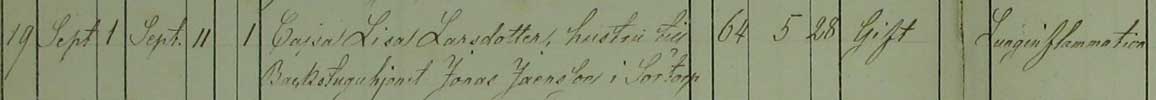 19 Sept. 1 Sept. 11 1 Cajsa Lisa Larsdotter, hustru till 64 5 28 Gift Lunginflammation
Backstuguhjonet Jonas Jaenson i Sörtorp